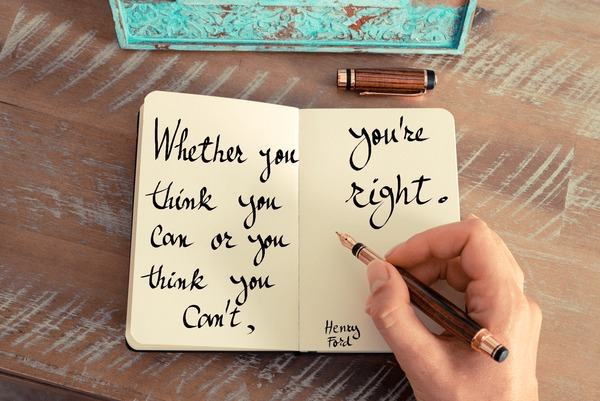 Whether you
think you
Can or you
think you
Can't,
you're
right.
Henry
Ford